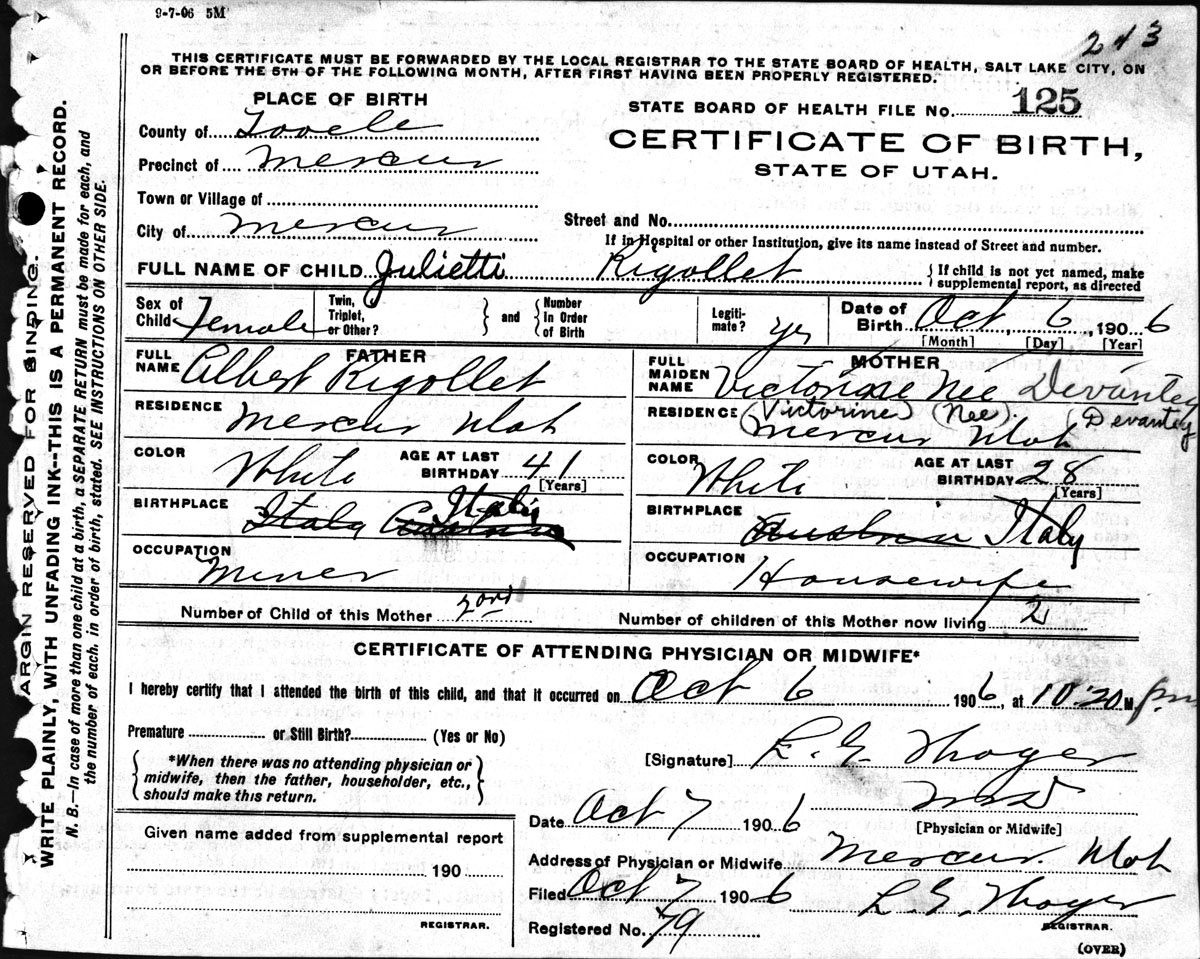 9-7-06 5M
243
THIS CERTIFICATE MUST BE FORWARDED BY THE LOCAL REGISTRAR TO THE STATE BOARD OF HEALTH, SALT LAKE CITY, ON
OR BEFORE THE 5TH OF THE FOLLOWING MONTH, AFTER FIRST HAVING BEEN PROPERLY REGISTERED.
PLACE OF BIRTH
STATE BOARD OF HEALTH FILE No. 125
County of Tooele
CERTIFICATE OF BIRTH,
Precinct of Mercur
STATE OF UTAH.
Town or Village of
City of Mercur
Street and No.
If in Hospital or other Institution, give its name instead of Street and number.
FULL NAME OF CHILD Julietti Rigollet { If child is not yet named, make
supplemental report, as directed
Sex of Child Female
Twin, Triplet, or Other?
} and {
Number In Order of Birth
Legiti- mate? yes
Date of Birth Oct 6, 1906
[Month] [Day] [Year]
FATHER
FULL NAME Albert Rigollet
RESIDENCE Mercur Utah
COLOR White AGE AT LAST BIRTHDAY 41
[Years]
BIRTHPLACE Italy Austria Italy
OCCUPATION Miner
MOTHER
FULL MAIDEN NAME Victorine Nee Devantey
(Victorine) (Nee). (Devantey
RESIDENCE Mercur Utah
COLOR White AGE AT LAST BIRTHDAY 28
[Years]
BIRTHPLACE Austria Italy
OCCUPATION Housewife
Number of Child of this Mother 2nd
Number of children of this Mother now living 2
CERTIFICATE OF ATTENDING PHYSICIAN OR MIDWIFE*
I hereby certify that I attended the birth of this child, and that it occurred on Oct 6 1906, at 10:20 M. pm
Premature or Still Birth? (Yes or No)
{ *When there was no attending physician or
midwife, then the father, householder, etc.,
should make this return. }
[Signature] L. E. Thayer
M D
Date Oct 7 1906
[Physician or Midwife]
Given name added from supplemental report
190
REGISTRAR.
Address of Physician or Midwife Mercur. Utah
Filed Oct 7 1906 L. E. Thayer
REGISTRAR.
Registered No. 79
(OVER)
MARGIN RESERVED FOR BINDING.
WRITE PLAINLY, WITH UNFADING INK--THIS IS A PERMANENT RECORD.
N. B.—In case of more than one child at a birth, a SEPARATE RETURN must be made for each, and
the number of each, in order of birth, stated. SEE INSTRUCTIONS ON OTHER SIDE.